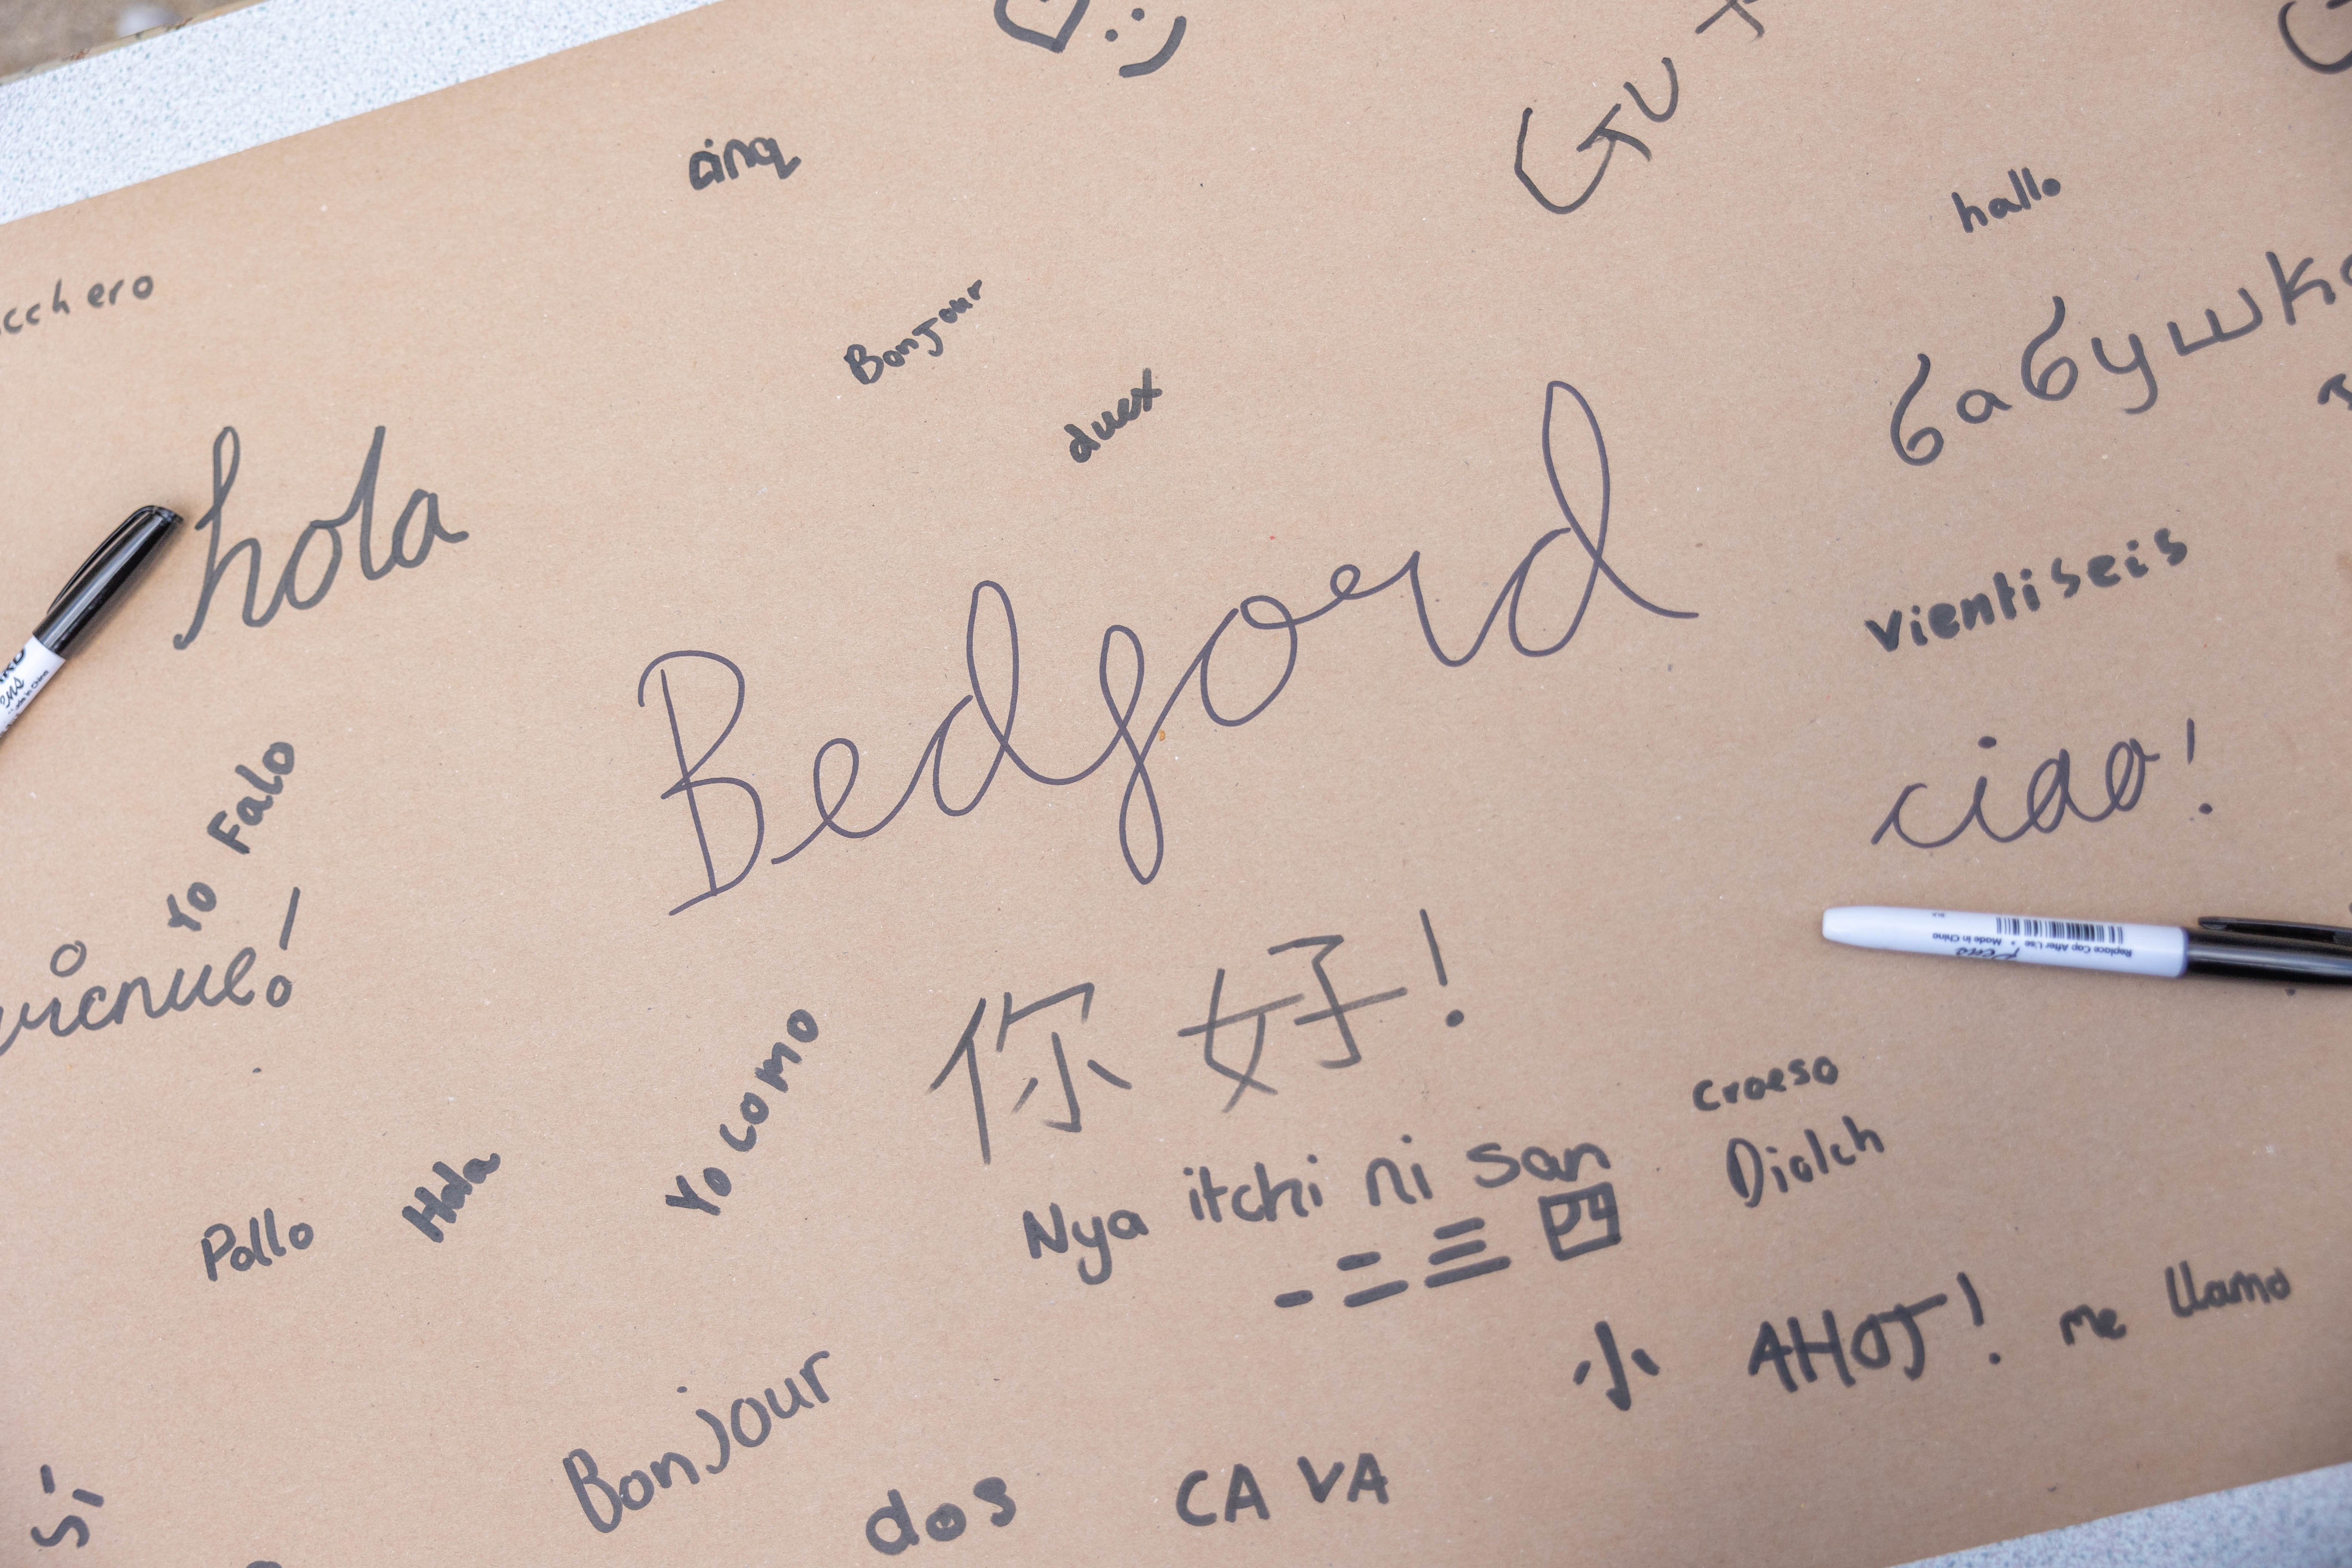 cinq
hallo
Bonjour
duex
hola
Bedford
vientiseis
ciao!
Yo Falo
你好!
Yo como
croeso
Diolch
Nya itchi ni san
一 二 三 四
Pollo
Hola
小
AHOJ!
me llamo
Bonjour
dos
CA VA
sí
Replace Cap After Use
Made in China